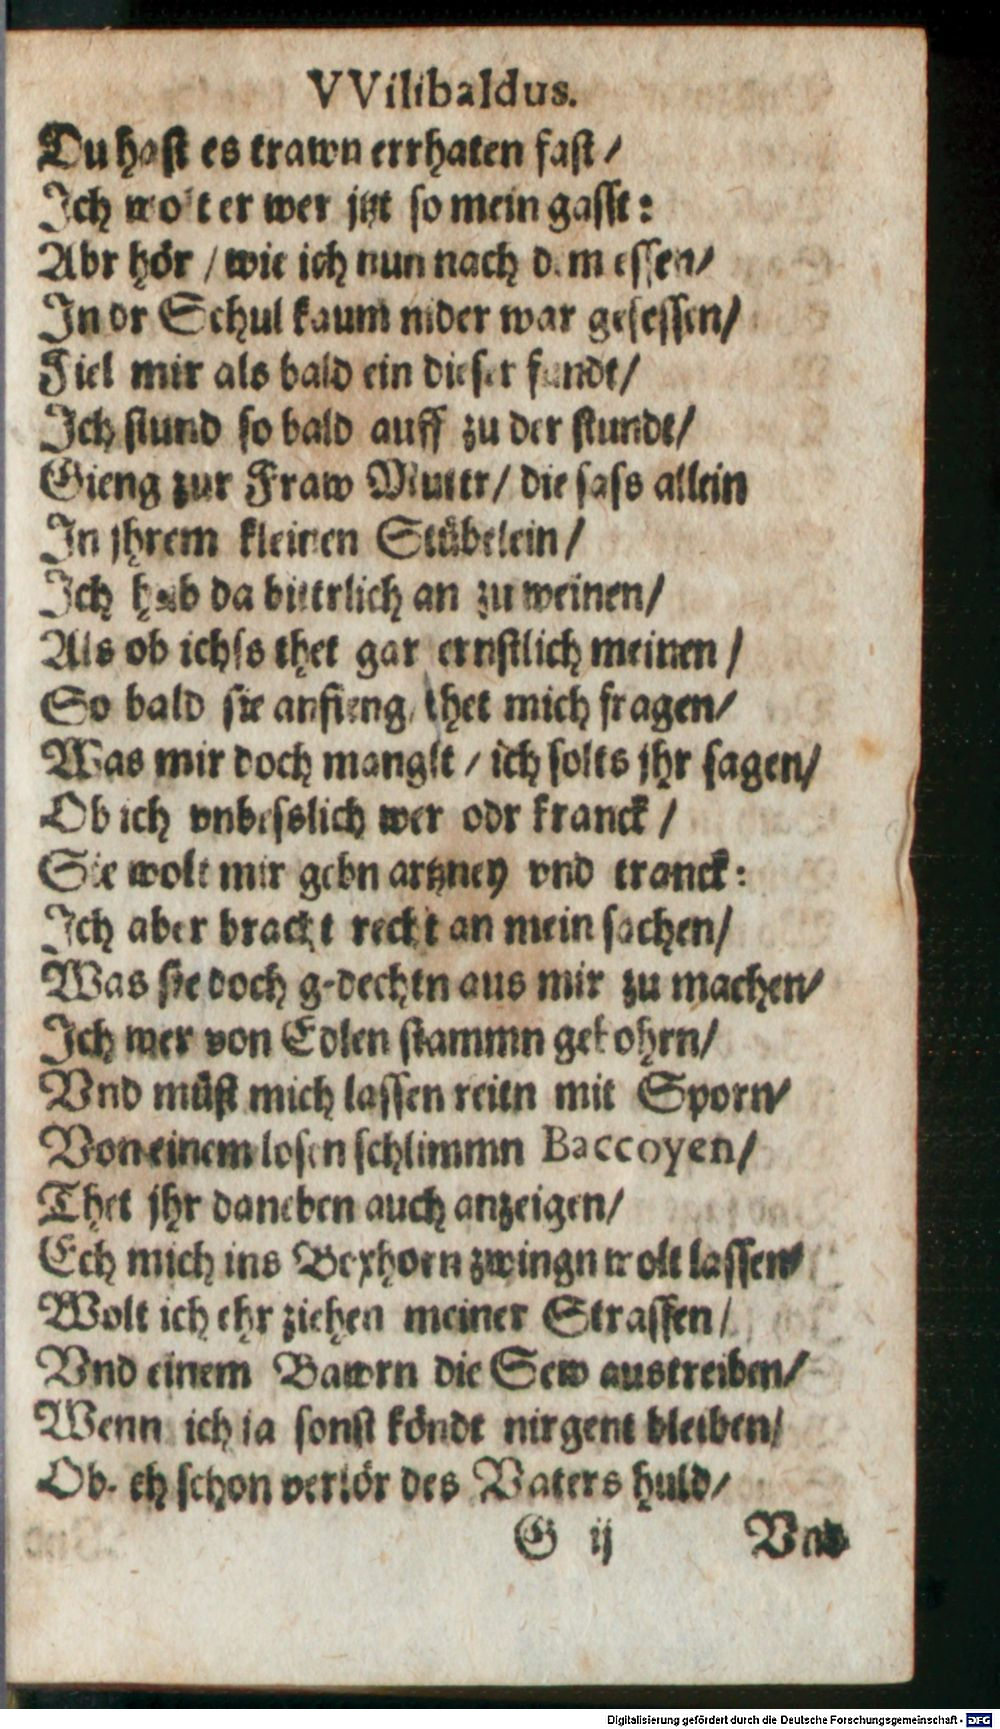 VVilibaldus.
Du hast es trawn errhaten fast /
Ich wolt er wer jtzt so mein gasst:
Abr hör / wie ich nun nach dem essen /
In dr Schul kaum nider war gesessen /
Fiel mir als bald ein dieser fundt /
Ich stund so bald auff zu der stundt /
Gieng zur Fraw Muttr / die sass allein
In jhrem kleinen Stübelein /
Ich hub da bittrlich an zu weinen /
Als ob ichss thet gar ernstlich meinen /
So bald sie anfieng / thet mich fragen /
Was mir doch manglt / ich solts jhr sagen /
Ob ich vnbesslich wer odr kranck /
Sie wolt mir gebn artzney vnd tranck:
Ich aber bracht recht an mein sachen /
Was sie doch gedechtn aus mir zu machen /
Ich wer von Edlen stammn gebohrn /
Vnd müst mich lassen reitn mit Sporn /
Von einem losen schlimmn Baccoyen /
Thet jhr daneben auch anzeigen /
Ech mich ins Boxhorn zwingn wolt lassen /
Wolt ich ehr ziehen meiner Strassen /
Vnd einem Bawrn die Sew austreiben /
Wenn ich ja sonst köndt nirgent bleiben /
Ob ich schon verlör des Vaters huld /
G ij Vnd
Digitalisierung gefördert durch die Deutsche Forschungsgemeinschaft - DFG